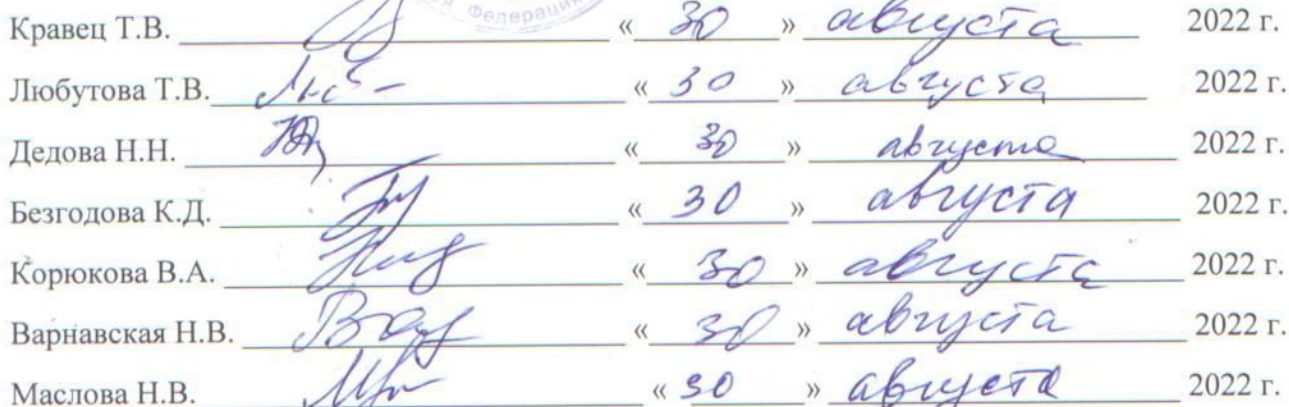 Федерация
Кравец Т.В. « 30 » августа 2022 г.
Любутова Т.В. « 30 » августа 2022 г.
Дедова Н.Н. « 30 » августа 2022 г.
Безгодова К.Д. « 30 » августа 2022 г.
Корюкова В.А. « 30 » августа 2022 г.
Варнавская Н.В. « 30 » августа 2022 г.
Маслова Н.В. « 30 » августа 2022 г.